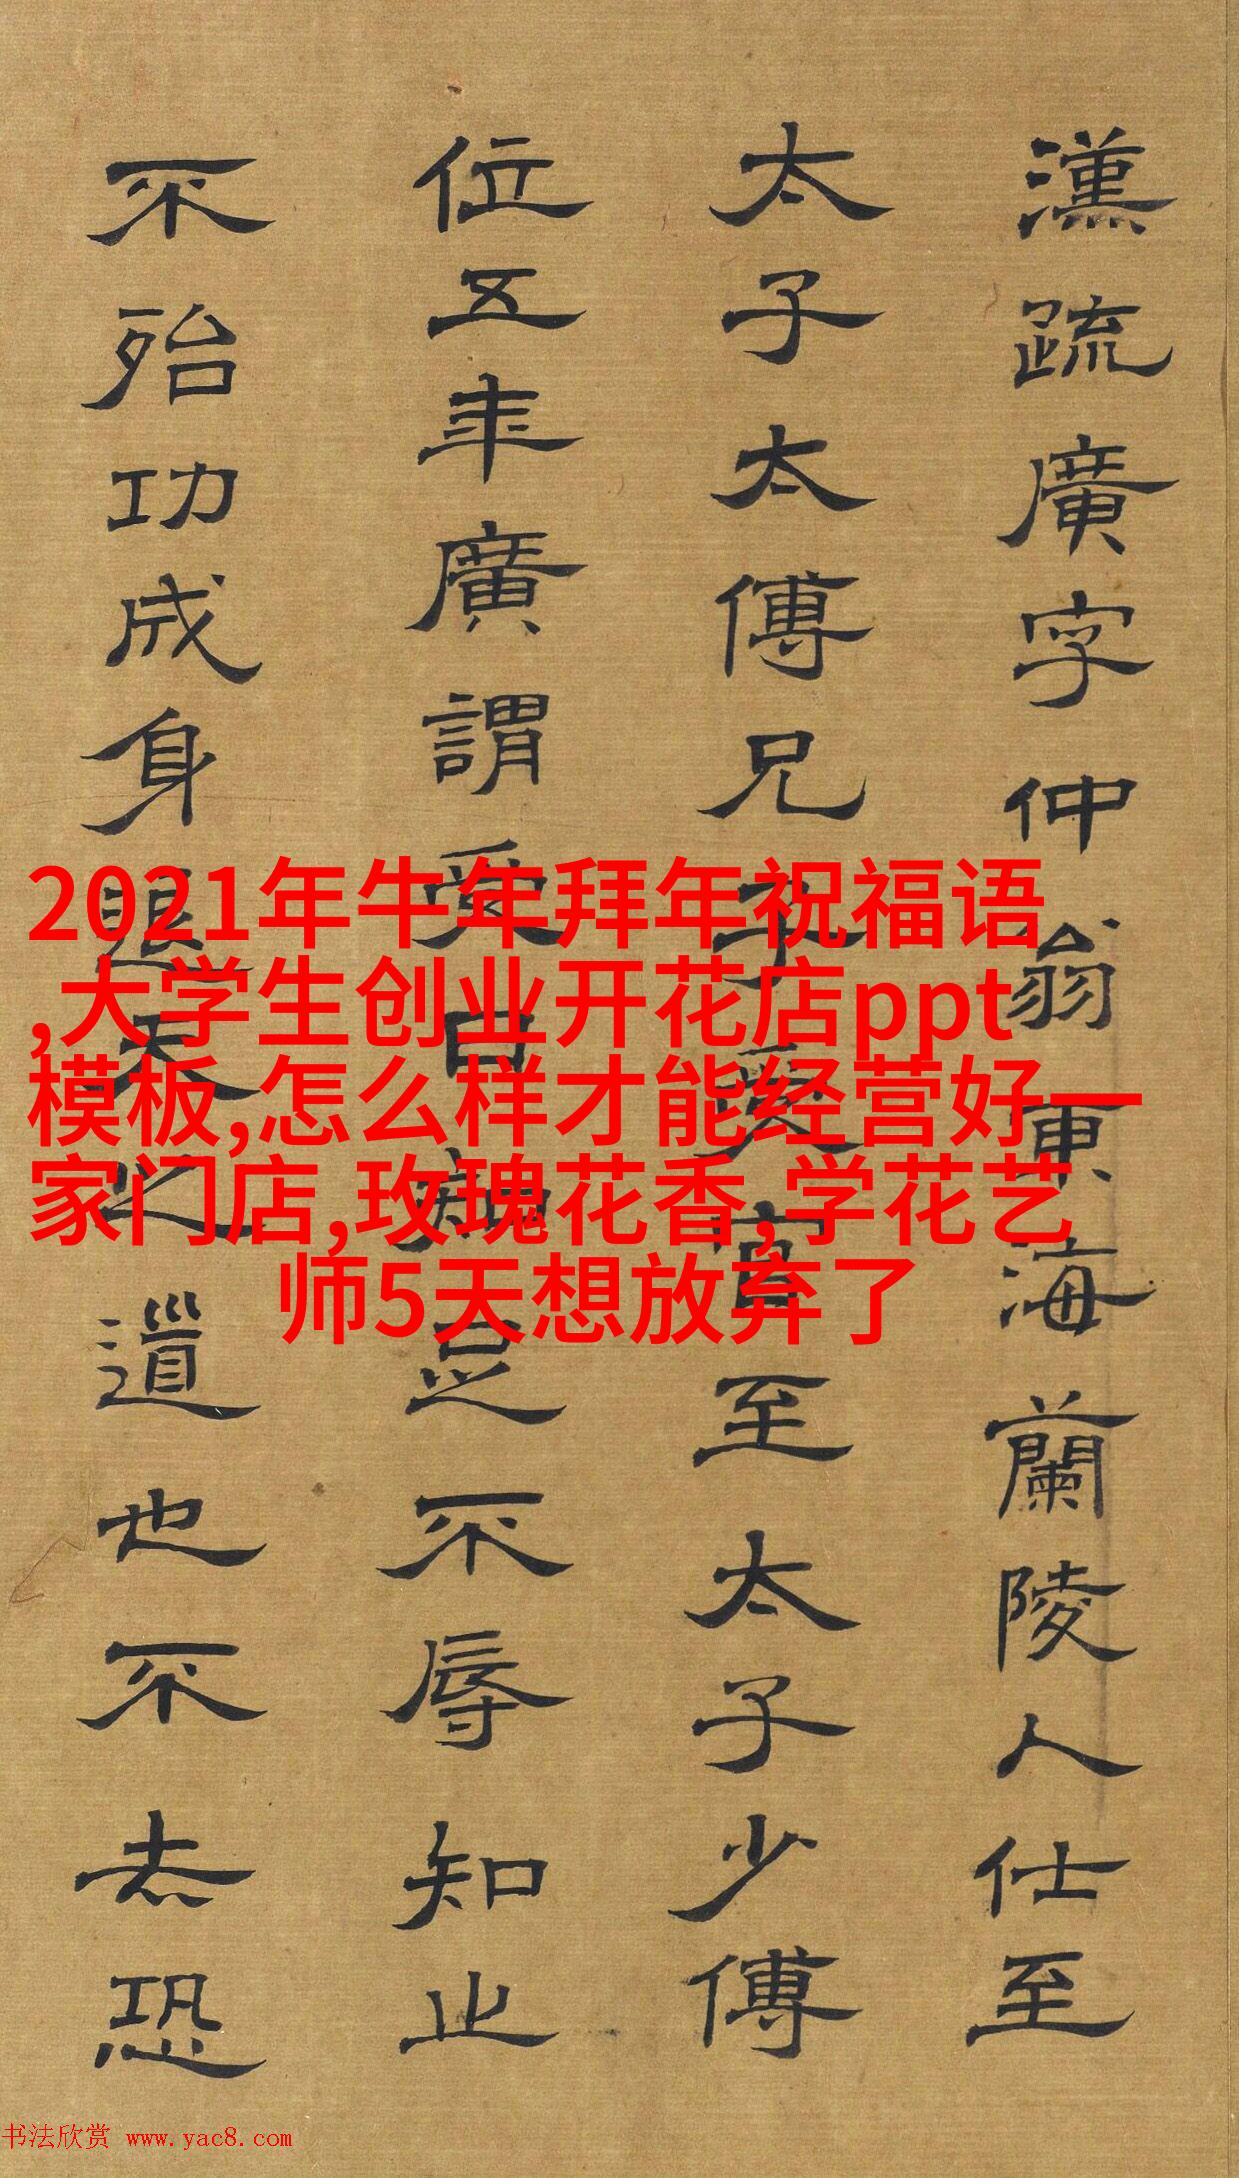 漢疏廣字仲翁東海蘭陵人仕至
太子太傅兄子受官至太子少傅
位五年廣謂受曰知足不辱知止
不殆功成身退天之道也不去恐
2021年牛年拜年祝福语
,大学生创业开花店ppt
模板,怎么样才能经营好一
家门店,玫瑰花香,学花艺
师5天想放弃了
书法欣赏 www.yac8.com